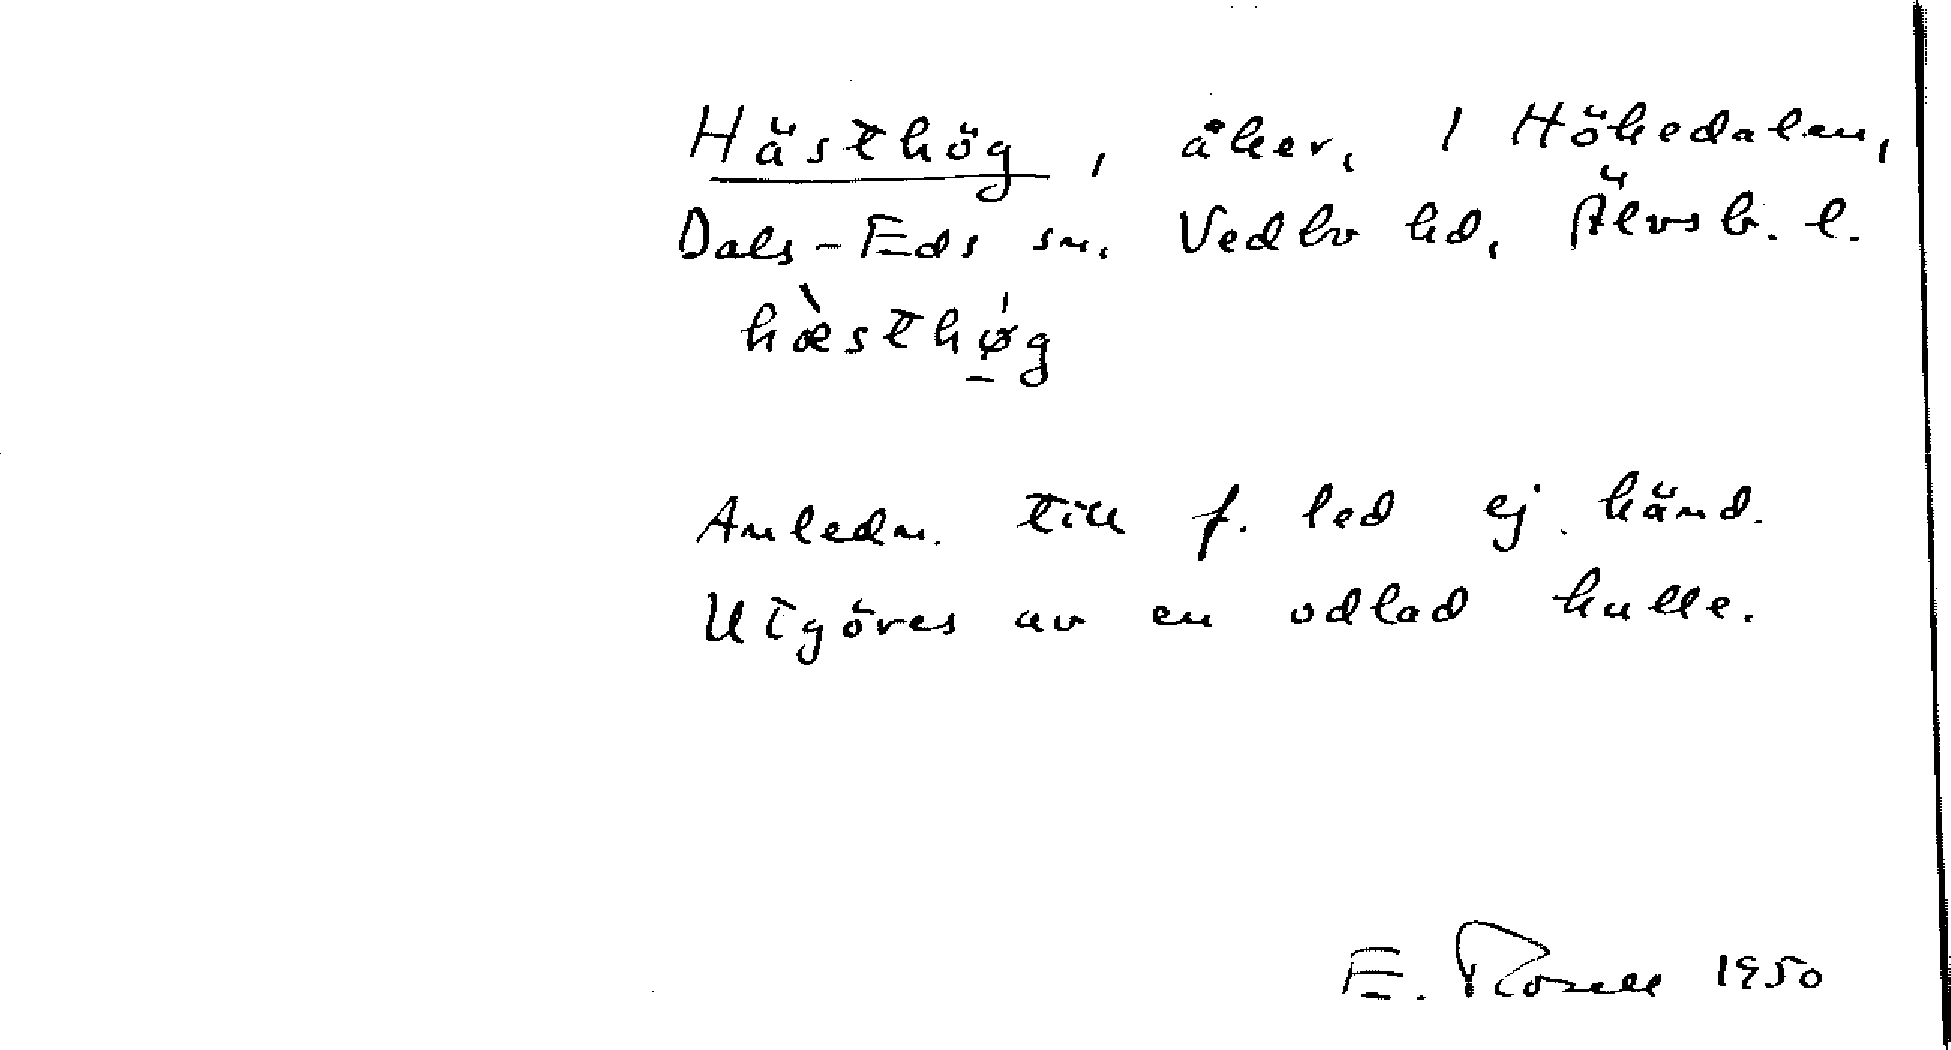 Hästhög, åker, 1 Hökedalen,
Dals-Eds sn. Vedbo hd, Älvsb. l.
hæ̀sthǿ̠g
Anledn. till f. led ej känd.
Utgöres av en odlad kulle.
E. Rosell 1950